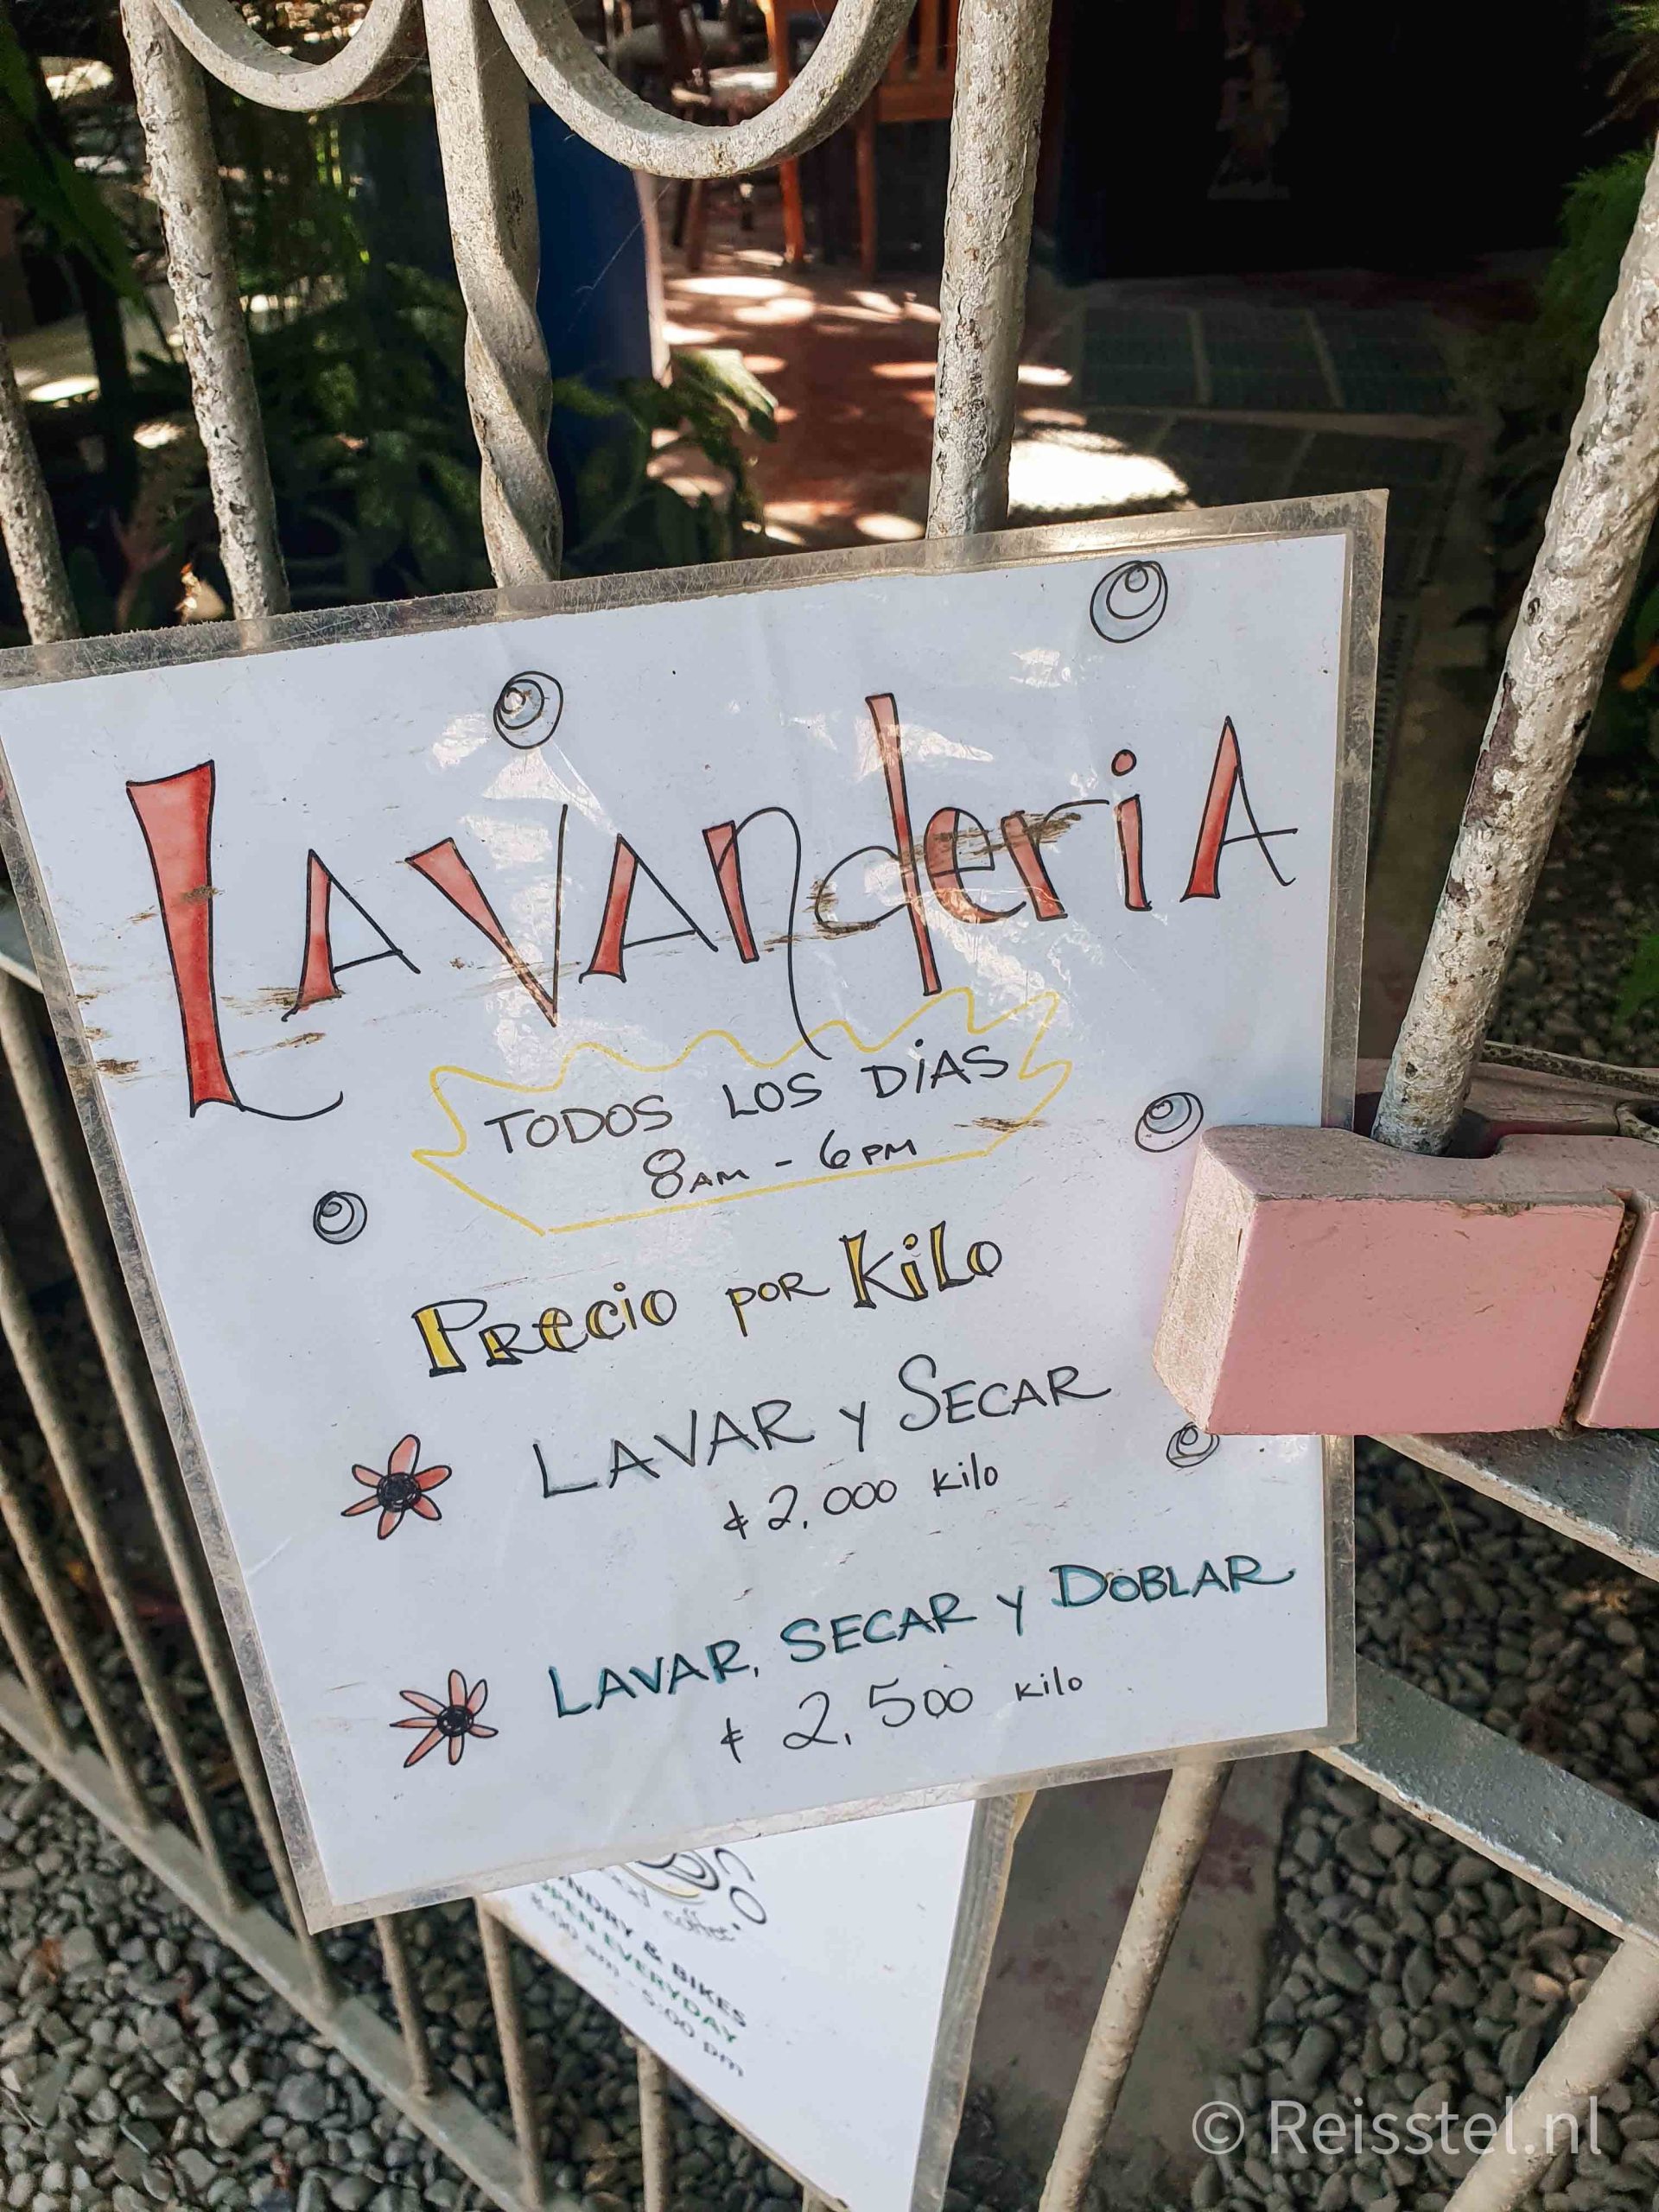 LAVANdERiA
TODOS LOS DíAS
8AM - 6PM
PRECiO POR KiLO
LAVAR y SECAR
¢ 2,000 kilo
LAVAR, SECAR y DOBLAR
¢ 2,500 kilo
coffee
& BIKES
OPEN EVERYDAY
am - 5:00 pm
© Reisstel.nl